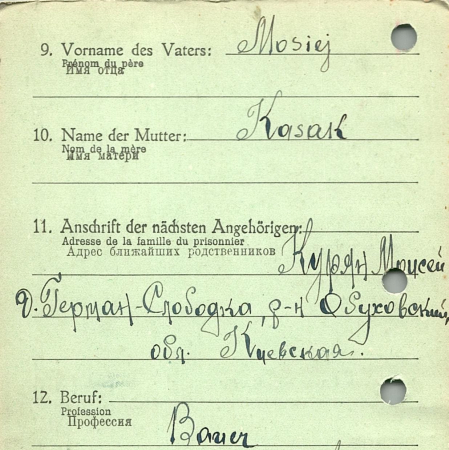 9. Vorname des Vaters: Mosiej
Prénom du père
Имя отца
10. Name der Mutter: Kasak
Nom de la mère
Имя матери
11. Anschrift der nächsten Angehörigen:
Adresse de la famille du prisonnier
Адрес ближайших родственников
Курян Моисей
д. Герман-Слободка, р-н Обуховский,
обл. Киевская.
12. Beruf:
Profession
Профессия
Bauer